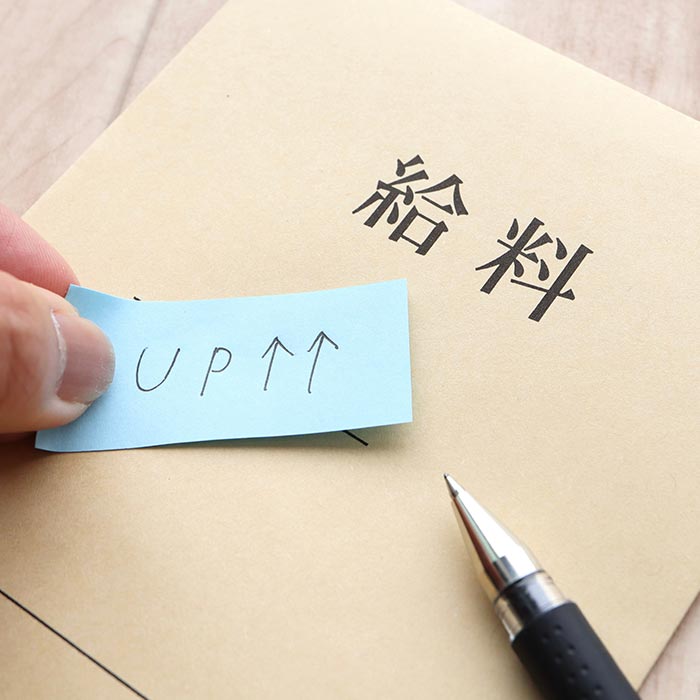 給料
UP↑↑